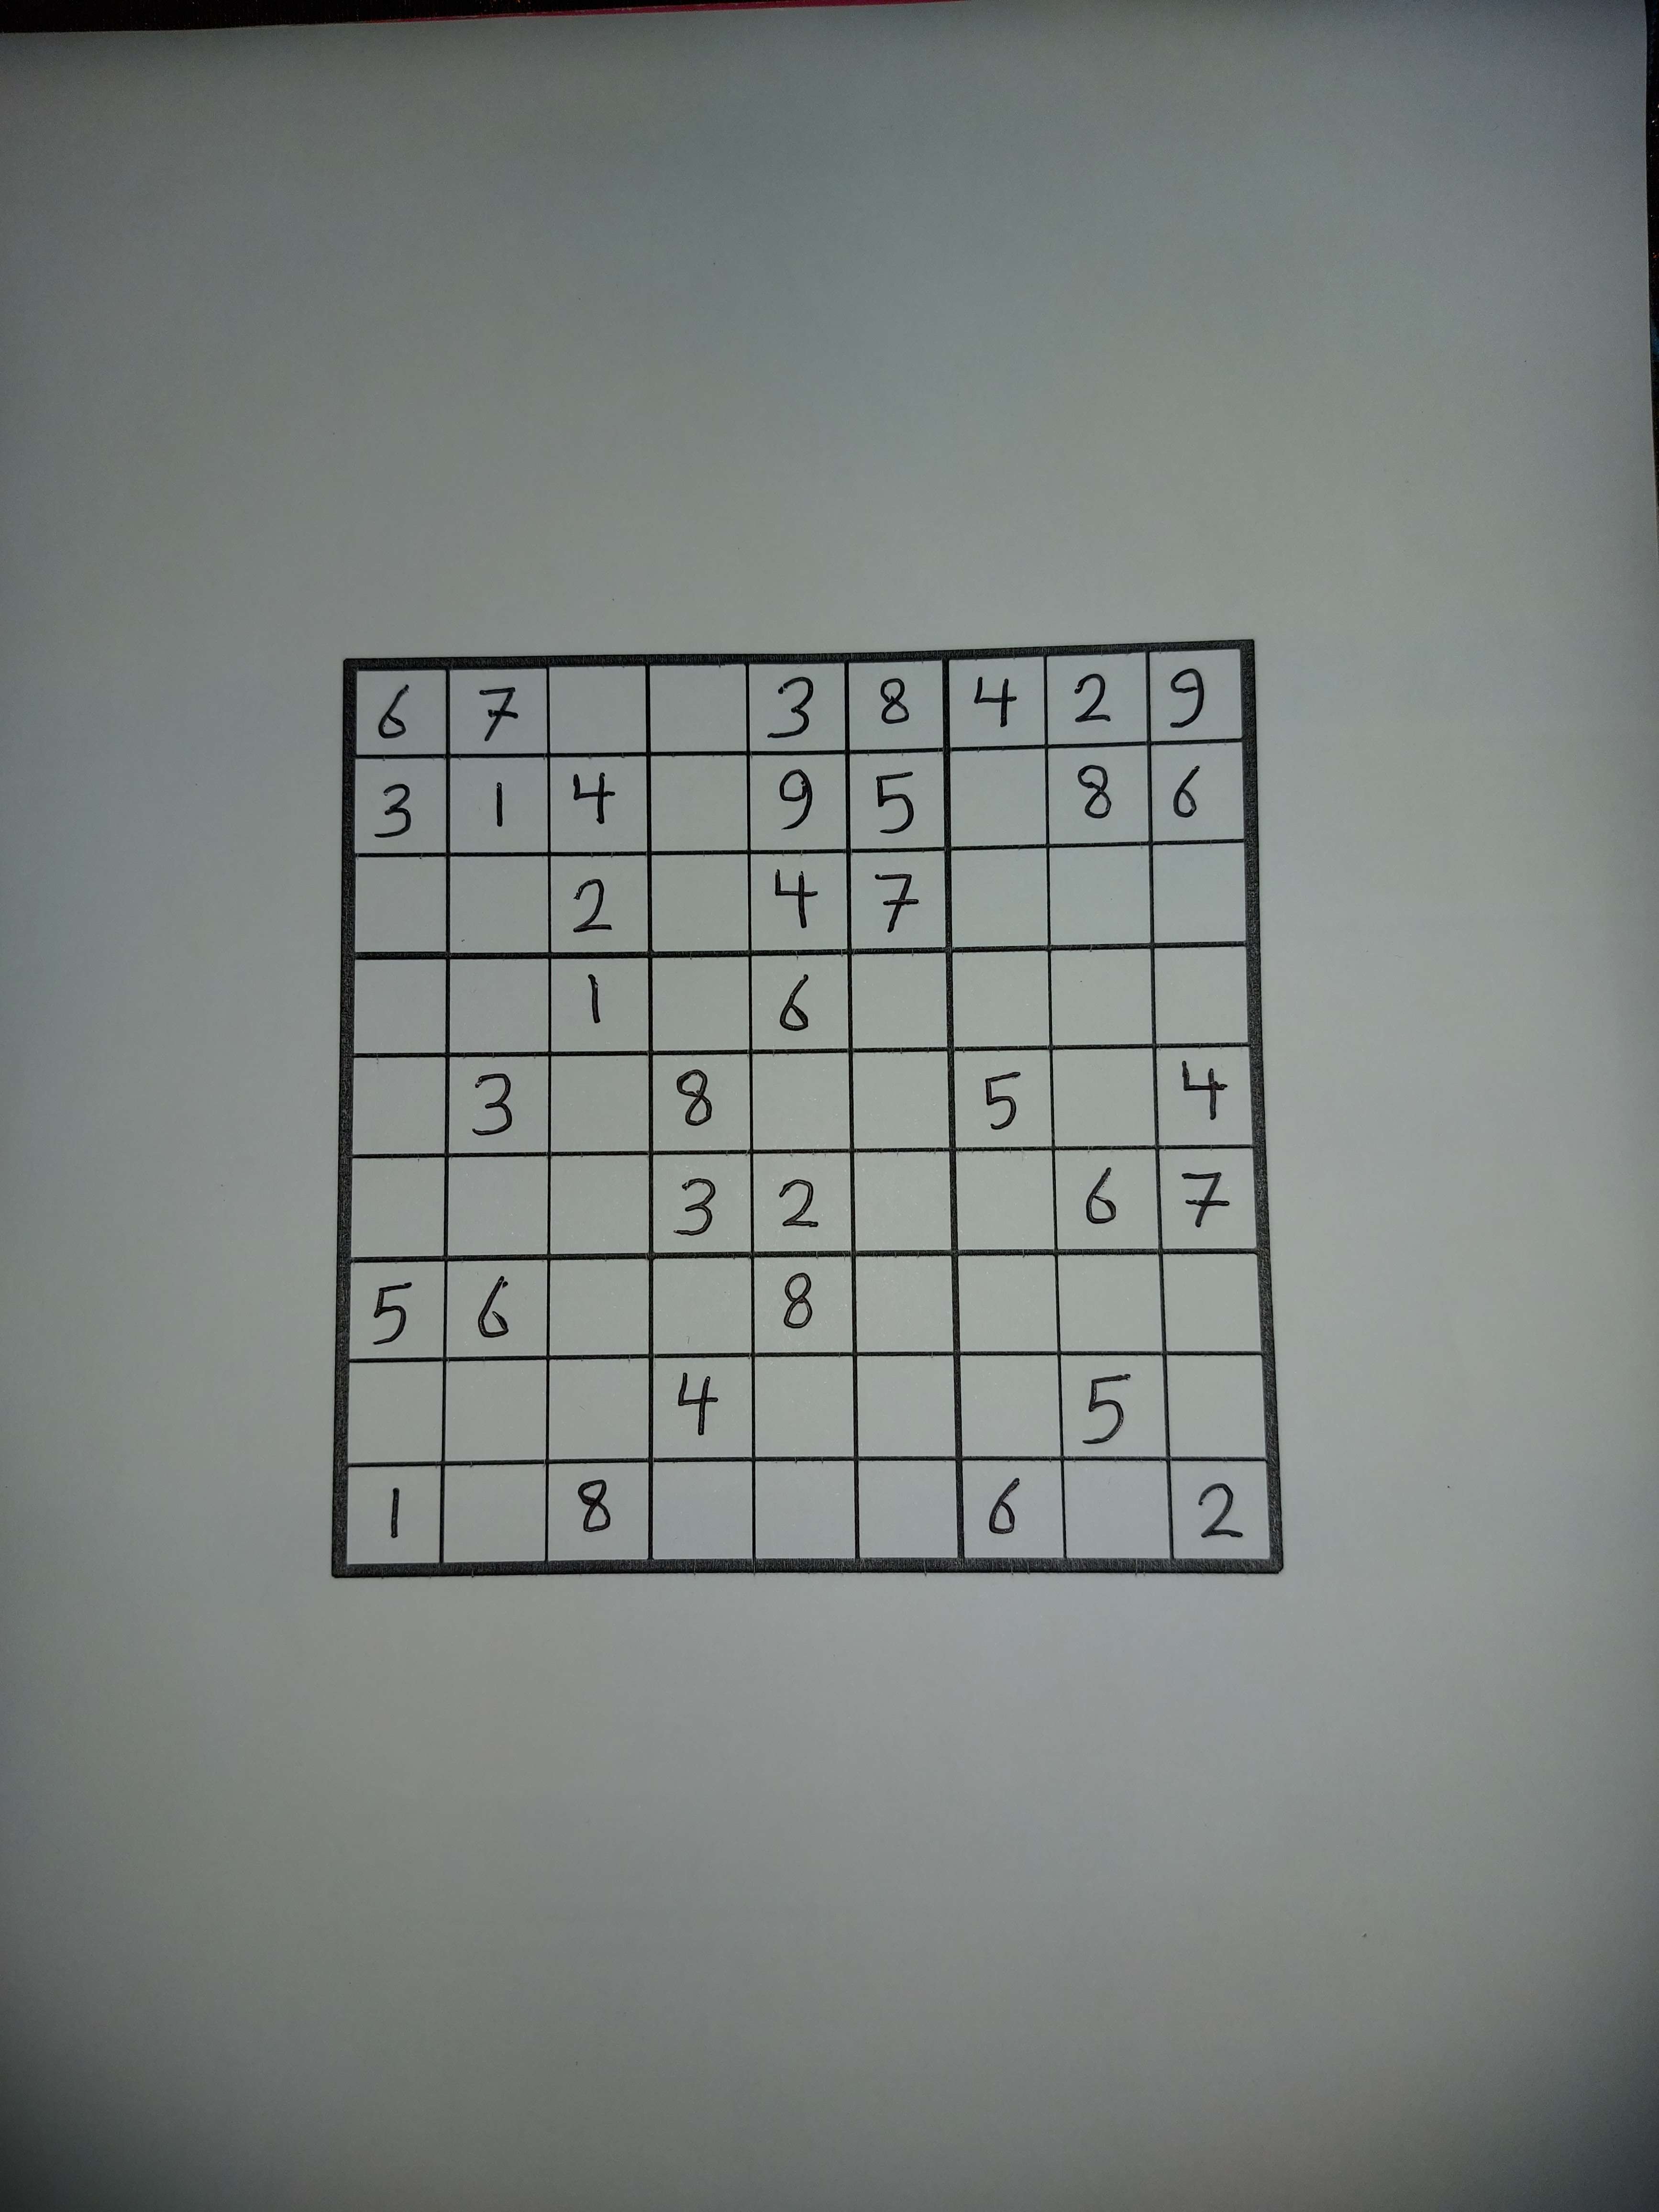 6 7 3 8 4 2 9
3 1 4 9 5 8 6
2 4 7
1 6
3 8 5 4
3 2 6 7
5 6 8
4 5
1 8 6 2